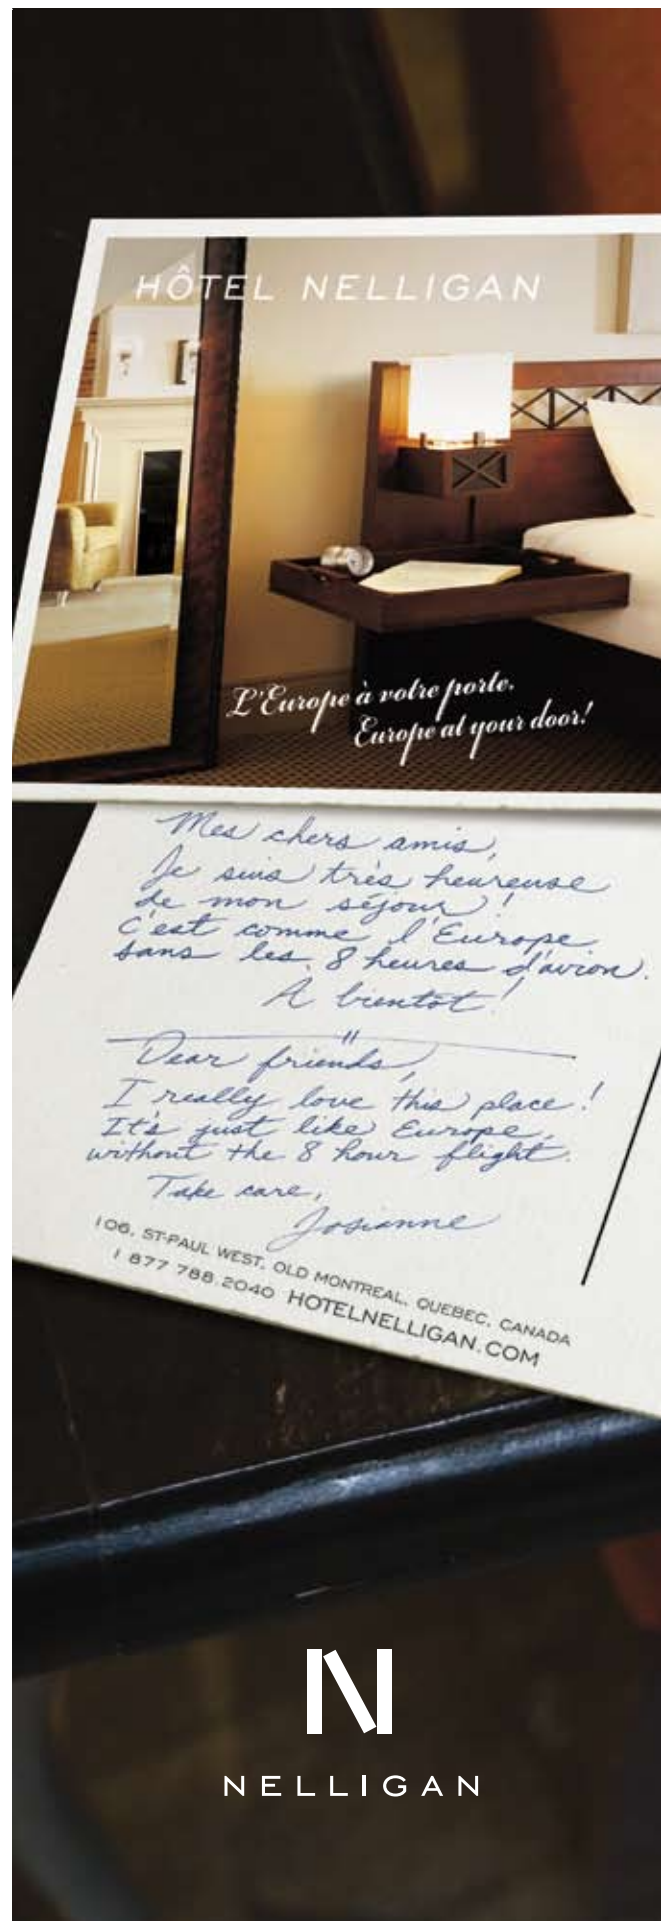 HÔTEL NELLIGAN
L'Europe à votre porte.
Europe at your door!
Mes chers amis,
Je suis très heureuse
de mon séjour!
C'est comme l'Europe
sans les 8 heures d'avion.
À bientôt!
Dear friends,
I really love this place!
It's just like Europe,
without the 8 hour flight.
Take care,
Josianne
106, ST-PAUL WEST, OLD MONTREAL, QUEBEC, CANADA
1 877 788 2040 HOTELNELLIGAN.COM
N
NELLIGAN